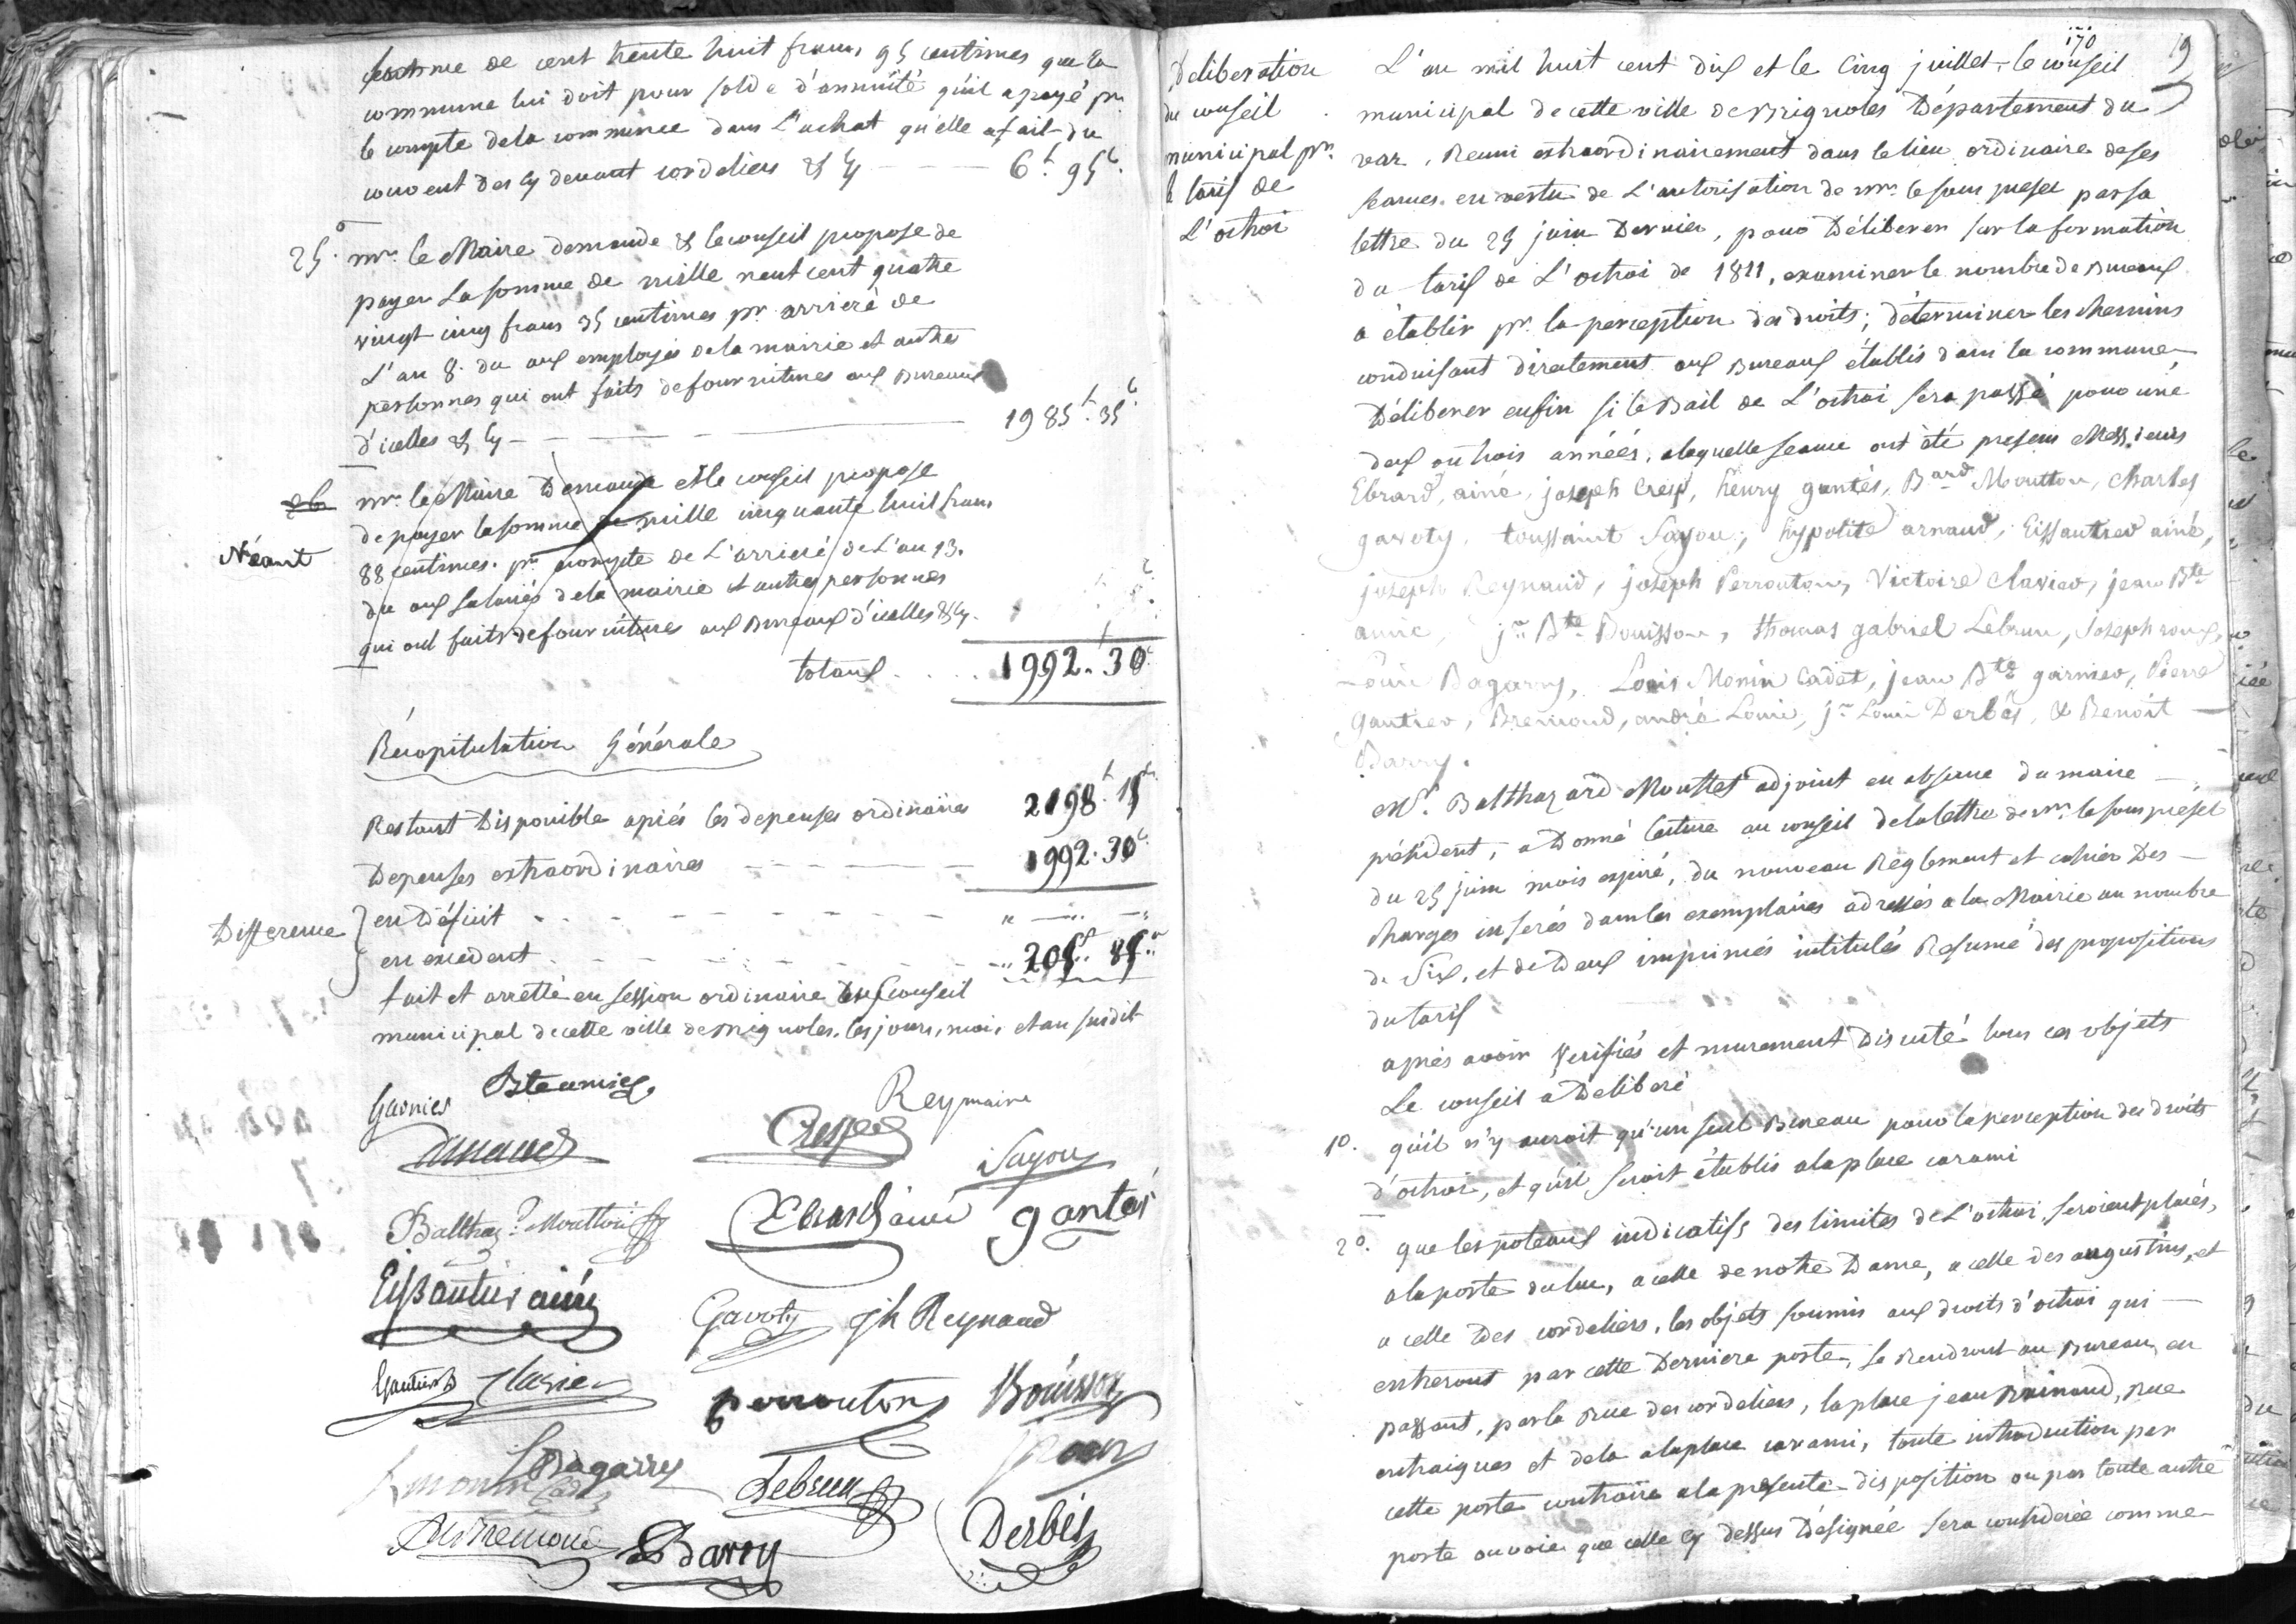 somme de cent trente huit francs 95 centimes que la
commune lui doit pour solde d'annuité qu'il a payé pr.
le compte de la commune dans l'achat qu'elle a fait du
couvent des cy devant cordeliers &. Cy — — — 6f. 95c.
25°. mr. le Maire demande & le conseil propose de
payer La somme de mille neuf cent quatre
vingt cinq francs 35 centimes pr. arrieré de
L'an 8. du aux employés de la mairie et autres
personnes qui ont faits de fournitures aux Bureaux
d'icelles &. Cy — — — — — 1985f. 35c.
26 mr. le Maire Demande et le conseil propose
de payer la somme de mille cinquante huit francs
Néant
88 centimes. pr. compte de L'arrieré de L'an 13.
du aux salariés de la mairie et autres personnes
qui ont faits de fournitures aux Bureaux d'icelles & Cy.
totaux . . . . 1992f. 30c.
Récapitulation Générale
Restant Disponible après les depenses ordinaires 2198f. 15c.
Depenses extraordinaires — — — — 1992. 30c.
Difference } en Déficit - - - - - - - " — " — "
en excedent - - - - - - - 205f. 85c.
fait et arretté en session ordinaire du Conseil
municipal de cette ville de Brignoles. les jours, mois, et an susdit
Garnier Bte amic Reymaine
arnaud Cresp Sayou
Balthaz.d Moutton Ebrard ainé gantés
Eissautier ainé Gavoty jh Reynaud
Gautier Clavier perrouton Bouisson
L Bagarry
L monin Cadet Lebrun Roux
Bremond B Barry Derbès
Deliberation
du conseil
municipal pr.
le tarif de
L'octroi
170
19
L'an mil huit cent dix et le Cinq juillet, le conseil
municipal de cette ville de Brignoles Département du
var, Reuni extraordinairement dans le lieu ordinaire de ses
seances. en vertu de L'autorisation de mr. le sous prefet par sa
lettre du 25 juin Dernier, pour Déliberer sur la formation
du tarif de L'octroi de 1811, examiner le nombre de Bureaux
a établir pr. la perception des droits; déterminer les chemins
conduisant directement aux Bureaux établis dans la commune
Déliberer enfin si le Bail de L'octroi sera passé pour une
deux ou trois années. a laquelle seance ont été presens Messieurs
Ebrard, ainé, joseph Cresp, henry gantés, Bard Moutton, charles
gavoty, toussaint Sayou, hypolite arnaud, Eissautier ainé,
joseph Reynaud, joseph Perrouton, Victoire Clavier, jean Bte
amic, jn. Bte Bouisson, thomas gabriel Lebrun, Joseph roux,
Louis Bagarry, Louis Monin Cadet, jean Bte garnier, Pierre
Gautier, Bremond, andré Louis, jn Louis Derbès, & Benoit
Barry.
Mr. Balthazard Mouttet adjoint en absence du maire
président, a Donné lecture au conseil de la lettre de mr. le sous préfet
du 25 juin mois expiré, du nouveau Reglement et cahier Des
charges inserés dans les exemplaires adressés a la Mairie au nombre
de Six, et de Deux imprimés intitulés Resumé des propositions
du tarif
après avoir Verifiés et murement Discuté tous ces objets
Le conseil a Deliberé
1°. qu'il n'y auroit qu'un seul Bureau pour la perception des droits
d'octroi, et qu'il seroit établis a la place carami
2°. que les poteaux indicatifs des limites de L'octroi, seroient placés,
a la porte du luc, a celle de notre Dame, a celle des augustins, et
a celle Des cordeliers. les objets soumis aux droits d'octroi qui
entreront par cette Derniere porte, se Rendront au Bureau, en
passant, par la Rue des cordeliers, la place jean Rainaud, Rue
entraigues et dela a la place carami, toute introduction par
cette porte contraire a la presente disposition ou par toute autre
porte ou voie que celle cy dessus Désignée sera considerée comme